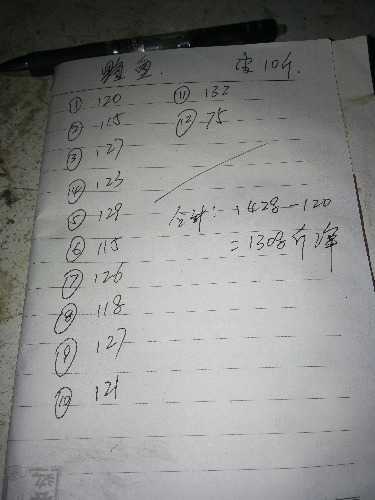 皮10斤.
① 120 ⑪ 132
② 115 ⑫ 75
③ 127
④ 123
⑤ 129
⑥ 115
⑦ 126
⑧ 118
⑨ 127
⑩ 121
合计:1428-120
=1308斤净